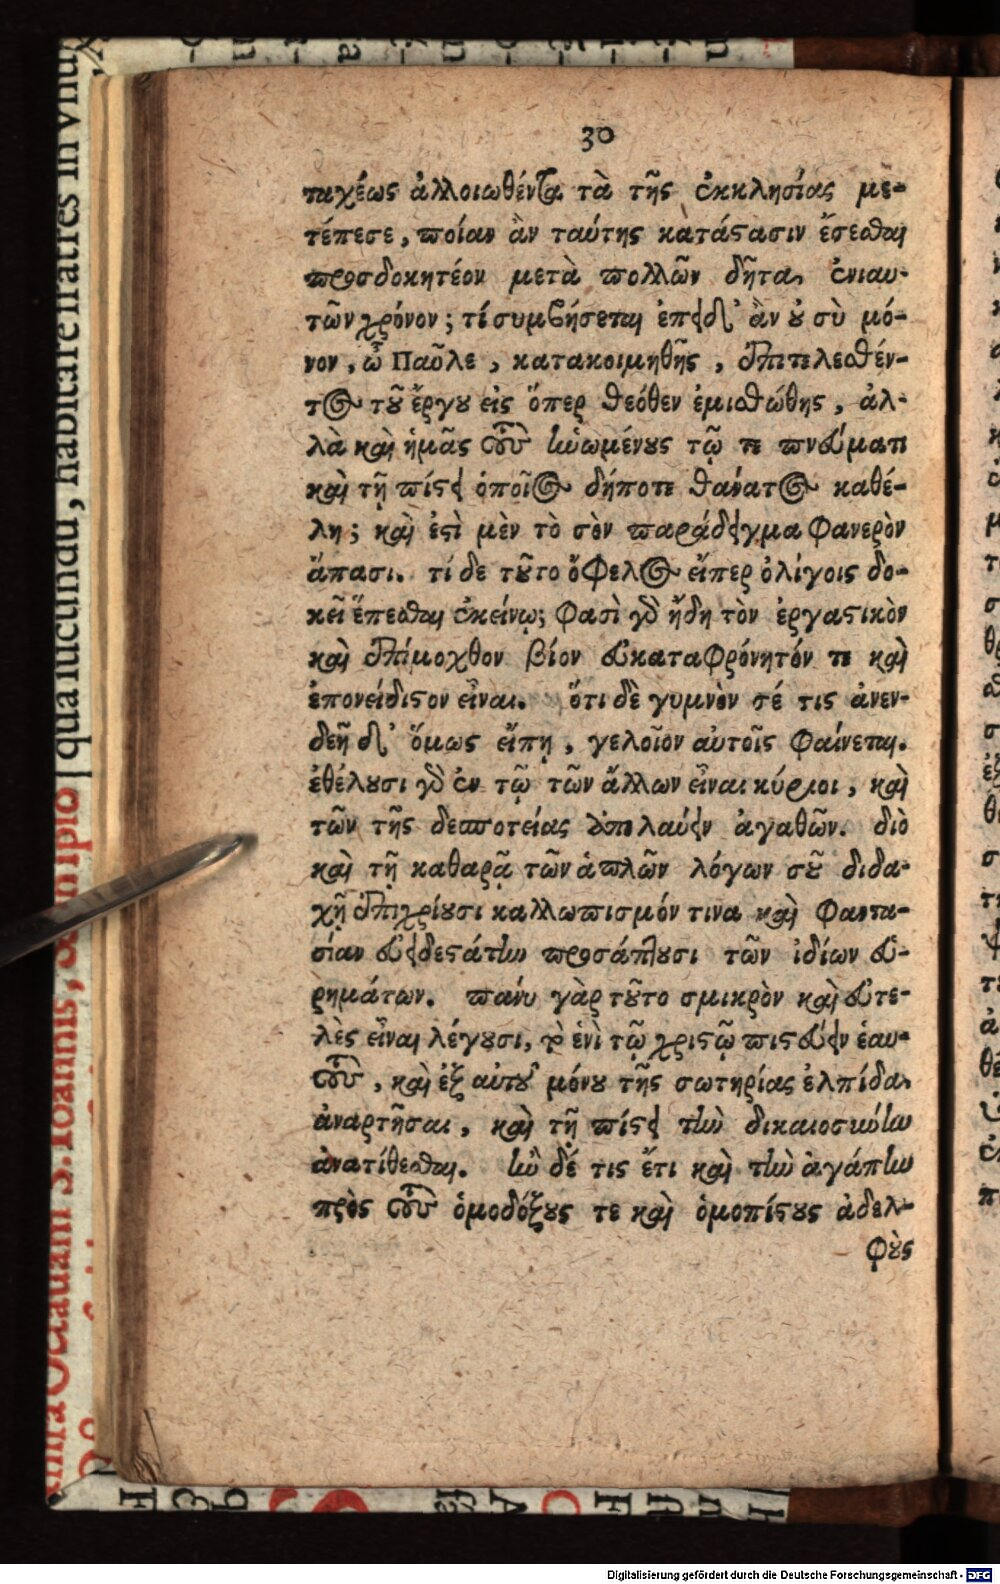 30
ταχέως ἀλλοιωθέντα τὰ τῆς ἐκκλησίας με-
τέπεσε, ποίαν ἂν ταύτης κατάστασιν ἔσεσθαι
προσδοκητέον μετὰ πολλῶν δῆτα ἐνιαυ-
τῶν χρόνον; τί συμβήσεται ἐπειδ' ἂν οὐ σὺ μό-
νον, ὦ Παῦλε, κατακοιμηθῇς, ἐπιτελεσθέν-
τος τοῦ ἔργου εἰς ὅπερ θεόθεν ἐμισθώθης, ἀλ-
λὰ καὶ ἡμᾶς τοὺς ἡνωμένους τῷ τε πνεύματι
καὶ τῇ πίστει ὁποῖος δήποτε θάνατος καθέ-
λῃ; καὶ ἐστὶ μὲν τὸ σὸν παράδειγμα φανερὸν
ἅπασι. τί δε τοῦτο ὄφελος εἴπερ ὀλίγοις δο-
κεῖ ἕπεσθαι ἐκείνῳ; φασὶ γὰρ ἤδη τὸν ἐργαστικὸν
καὶ ἐπίμοχθον βίον εὐκαταφρόνητόν τε καὶ
ἐπονείδιστον εἶναι. ὅτι δὲ γυμνὸν σέ τις ἀνεν-
δεῆ δ' ὅμως εἴπῃ, γελοῖον αὐτοῖς φαίνεται.
ἐθέλουσι γὰρ ἐν τῷ τῶν ἄλλων εἶναι κύριοι, καὶ
τῶν τῆς δεσποτείας ἀπολαύειν ἀγαθῶν. διὸ
καὶ τῇ καθαρᾷ τῶν ἁπλῶν λόγων σοῦ διδα-
χῇ ἐπιχρίουσι καλλωπισμόν τινα καὶ φαντα-
σίαν εὐειδεστάτην προσάπτουσι τῶν ἰδίων εὑ-
ρημάτων. πάνυ γὰρ τοῦτο σμικρὸν καὶ εὐτε-
λὲς εἶναι λέγουσι, τὸ ἑνὶ τῷ χριστῷ πιστεύειν ἑαυ-
τοὺς, καὶ ἐξ αὐτοῦ μόνου τῆς σωτηρίας ἐλπίδα
ἀναρτῆσαι, καὶ τῇ πίστει τὴν δικαιοσύνην
ἀνατίθεσθαι. ἢν δέ τις ἔτι καὶ τὴν ἀγάπην
πρὸς τοὺς ὁμοδόξους τε καὶ ὁμοπίστους ἀδελ-
φοὺς
qua iucundū, habitare fratres in vnū
Digitalisierung gefördert durch die Deutsche Forschungsgemeinschaft - DFG